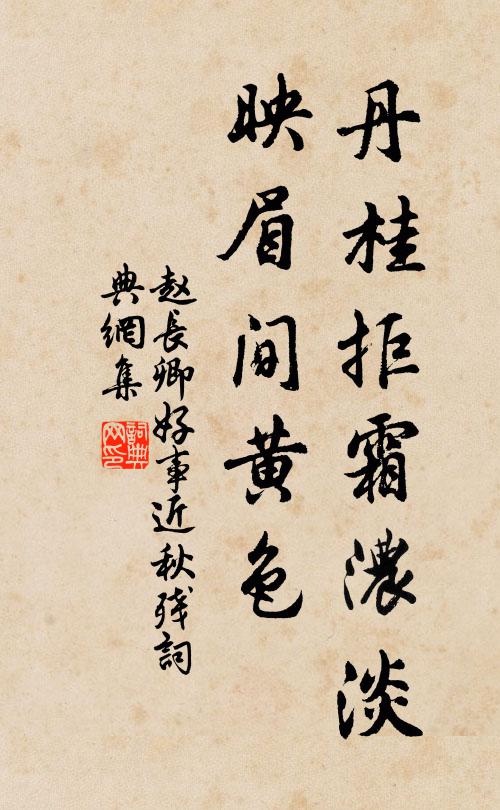 丹桂拒霜濃淡
映眉間黄色
赵長卿好事近秋残詞
典網集
詞典
网印